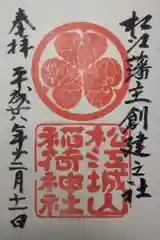 松江藩主創建之社
松江城山
稲荷神社
奉拝
平成廿六年十二月十一日